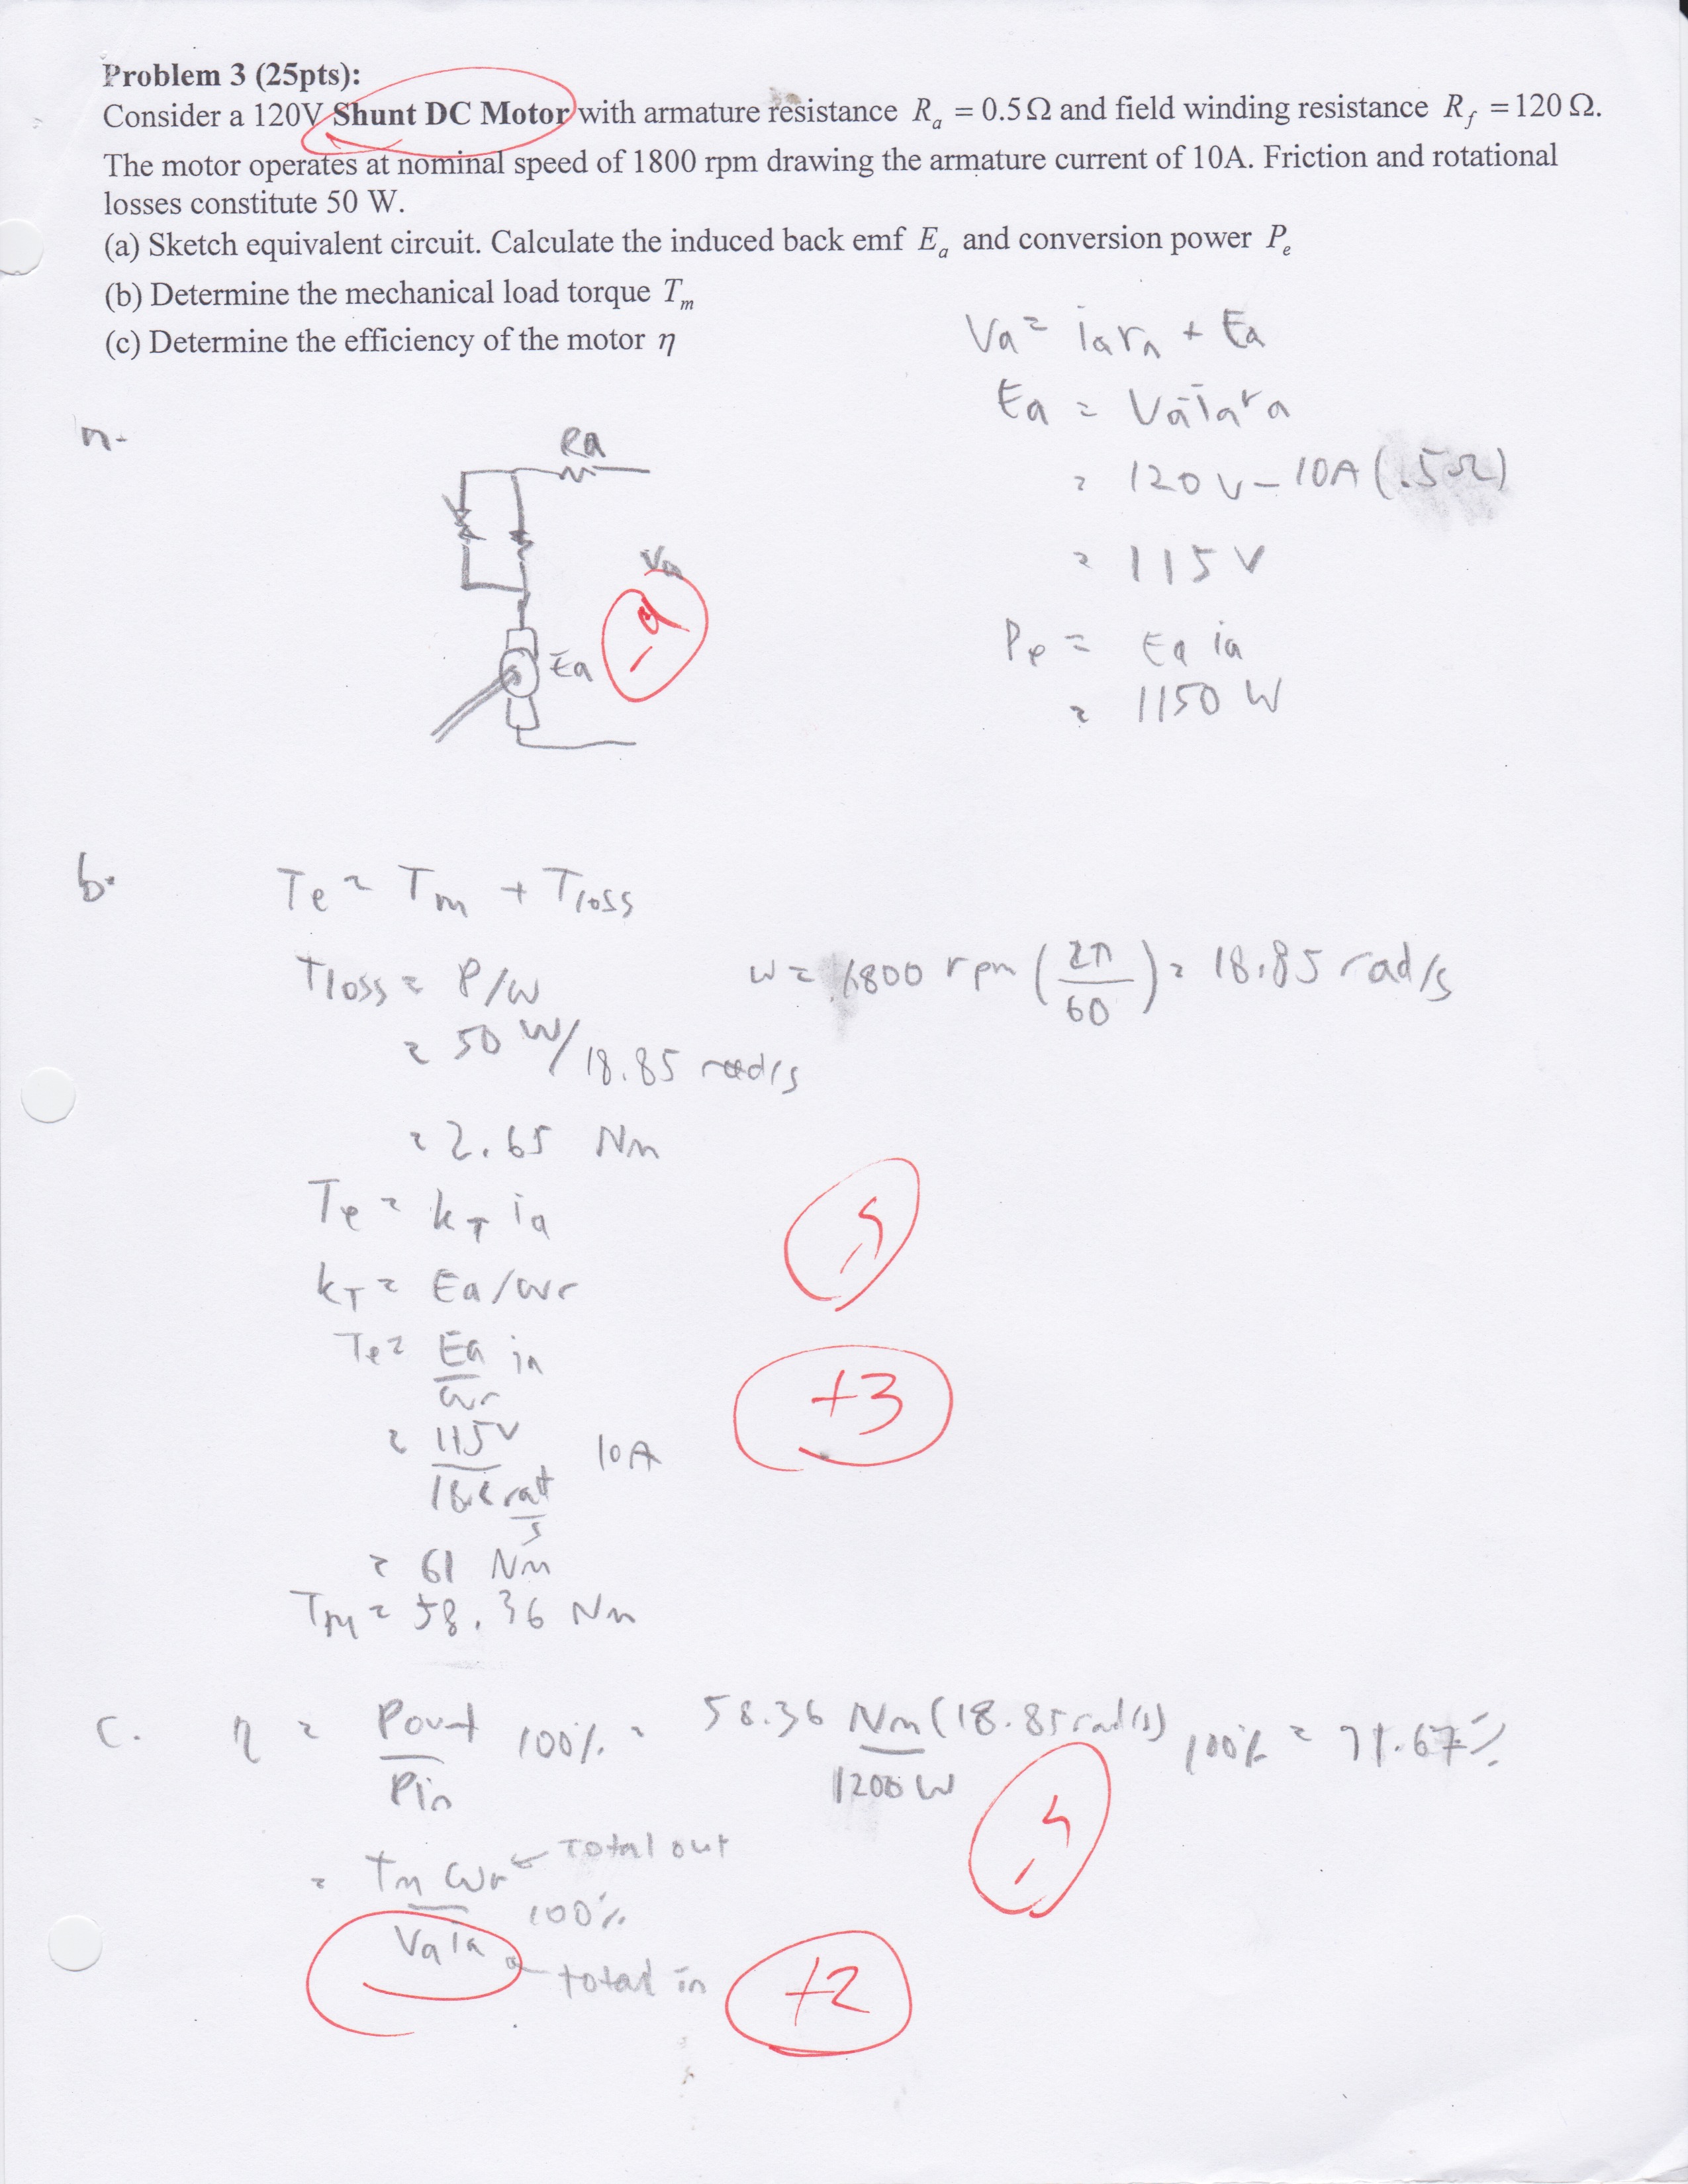 Problem 3 (25pts):
Consider a 120V Shunt DC Motor with armature resistance R_a = 0.5 Ω and field winding resistance R_f = 120 Ω.
The motor operates at nominal speed of 1800 rpm drawing the armature current of 10A. Friction and rotational
losses constitute 50 W.
(a) Sketch equivalent circuit. Calculate the induced back emf E_a and conversion power P_e
(b) Determine the mechanical load torque T_m
(c) Determine the efficiency of the motor η
Va = iara + Ea
Ea = Va-iara
= 120V - 10A (.5Ω)
= 115V
Pe = Ea ia
= 1150 W
Ra
Va
Ea
b.
Te = Tm + Tloss
Tloss = P/w
w = 1800 rpm (2π/60) = 18.85 rad/s
= 50 W/18.85 rad/s
= 2.65 Nm
Te = kT ia
kT = Ea/wr
Te = Ea/wr ia
= 115V 10A
= 61 Nm
Tm = 58.36 Nm
+3
c. η = Pout/Pin 100% = 58.36 Nm (18.85 rad/s)/1200 W 100% = 91.67%
= Tm wr/Va ia 100%
total out
total in
+2